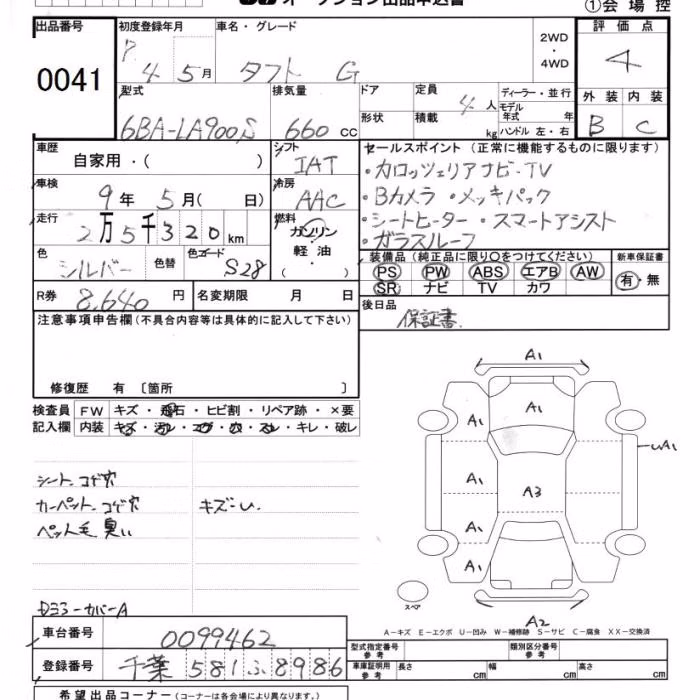 オークション出品申込書
①会場控
出品番号
0041
初度登録年月
4年 5月
車名・グレード
タフト G
2WD
・
4WD
評価点
4
外装 内装
B C
型式
6BA-LA900S
排気量
660 cc
ドア
形状
定員
4人
積載
kg
ディーラー・並行
モデル年式 年
ハンドル 左・右
車歴
自家用・( )
シフト
IAT
車検
9年 5月( 日)
冷房
AAC
走行
2万5千320km
燃料
ガソリン
軽油
( )
色
シルバー
色替
色コード
S28
R券
8,640円
名変期限 月 日
セールスポイント(正常に機能するものに限ります)
・カロッツェリアナビ・TV
・Bカメラ ・メッキパック
・シートヒーター ・スマートアシスト
・ガラスルーフ
装備品(純正品に限り○をつけてください)
PS PW ABS エアB AW
SR ナビ TV カワ
新車保証書
有・無
後日品
保証書
注意事項申告欄(不具合内容等は具体的に記入して下さい)
修復歴 有 〔箇所 〕
検査員記入欄
FW キズ・飛石・ヒビ割・リペア跡・×要
内装 キズ・汚レ・コゲ・穴・スレ・キレ・破レ
シート、コゲ穴
カーペット、コゲ穴 キズ
ペット毛 臭い
A1
A1
A1
A1
A1
A1
A3
A1
A2
スペア
A-キズ E-エクボ U-凹み W-補修跡 S-サビ C-腐食 XX-交換済
車台番号
0099462
登録番号
千葉 581 ふ 8986
型式指定番号
参考
類別区分番号
参考
車庫証明用
参考
長さ cm 幅 cm 高さ cm
希望出品コーナー(コーナーは各会場により異なります。)